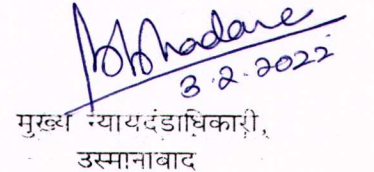 3.2.2022
मुख्य न्यायदंडाधिकारी,
उस्मानाबाद